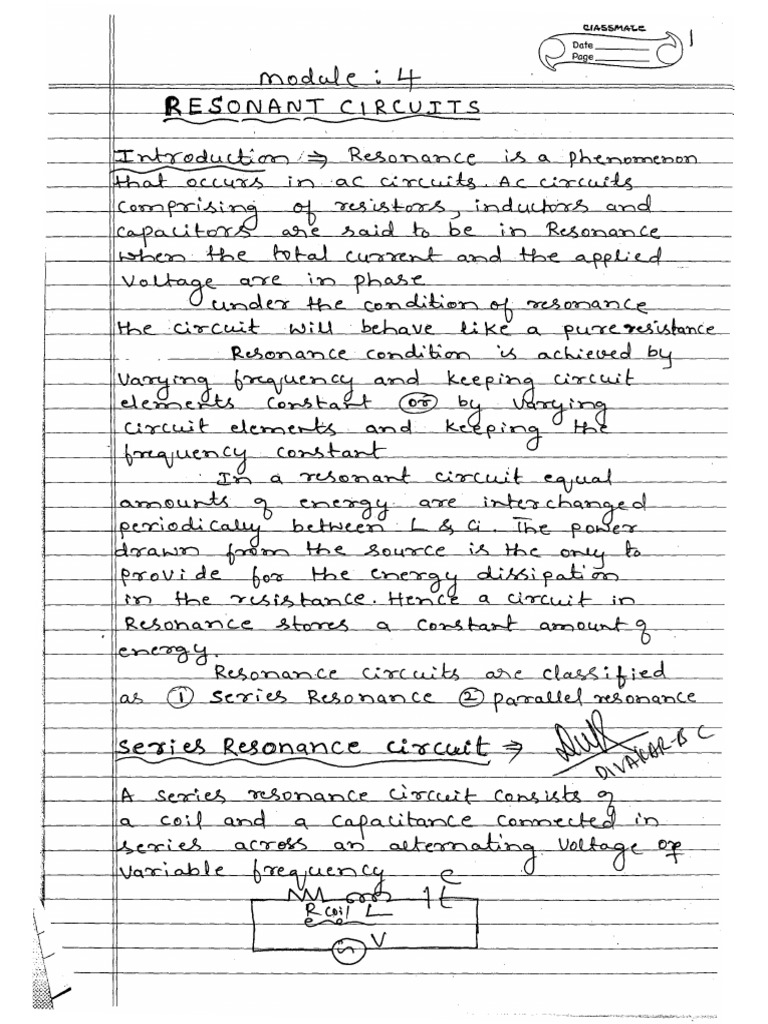 CLASSMATE
Date
Page
1
Module : 4
RESONANT CIRCUITS
Introduction :⇒ Resonance is a phenomenon
that occurs in ac circuits. Ac circuits
comprising of resistors, inductors and
capacitors are said to be in Resonance
when the total current and the applied
Voltage are in phase
under the condition of resonance
the circuit will behave like a pure resistance
Resonance condition is achieved by
Varying frequency and keeping circuit
elements constant (or) by varying
circuit elements and keeping the
frequency constant
In a resonant circuit equal
amounts of energy are interchanged
periodically between L & C. The power
drawn from the source is the only to
provide for the energy dissipation
in the resistance. Hence a circuit in
Resonance stores a constant amount of
energy.
Resonance circuits are classified
as ① Series Resonance ② parallel resonance
Series Resonance circuit ⇒
DIVAKAR-B C
A series resonance circuit consists of
a coil and a capacitance connected in
series across an alternating voltage of
variable frequency
C
R coil L
V